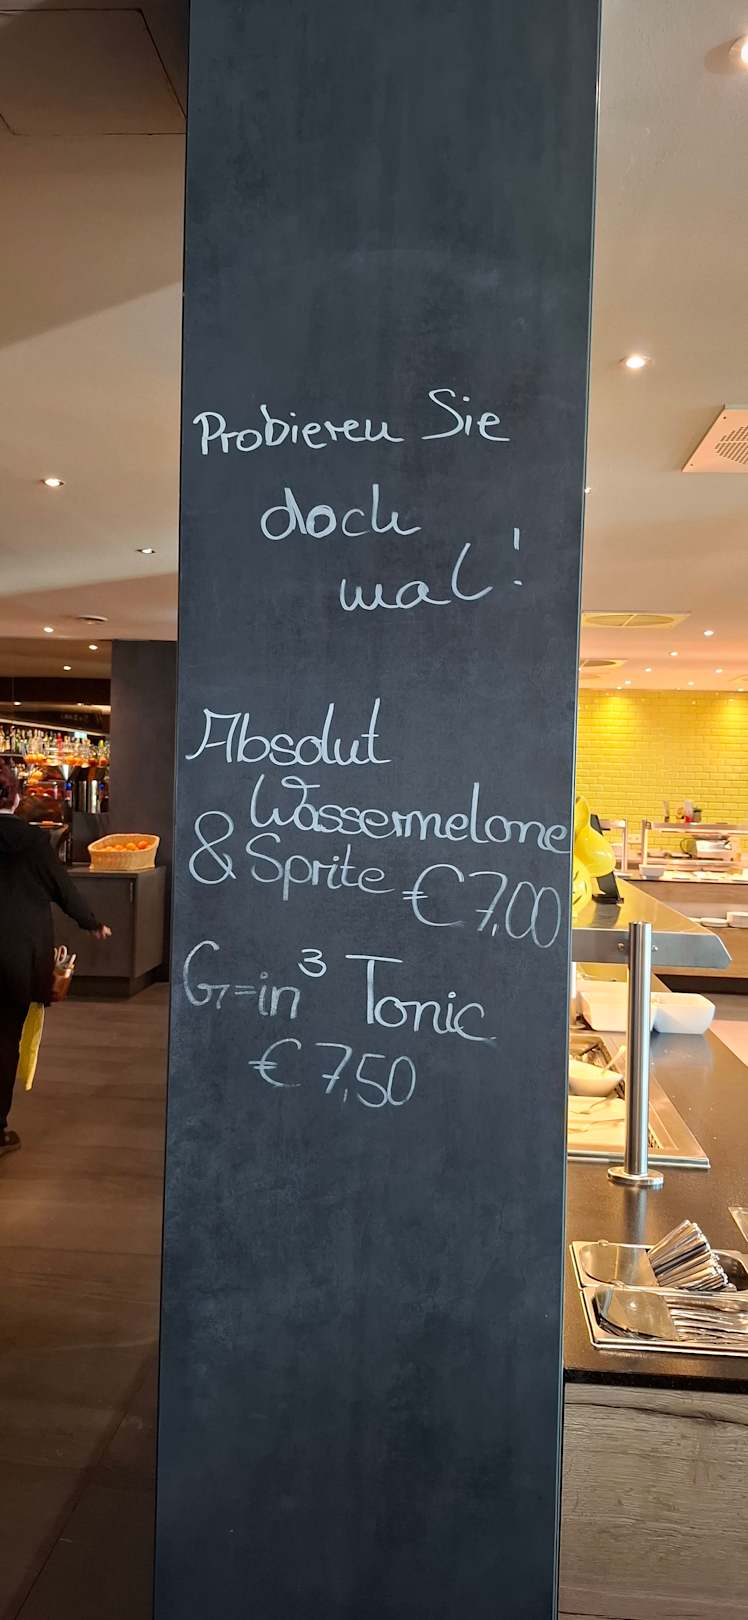 Probieren Sie
doch
mal!
Absolut
Wassermelone
& Sprite €7,00
G=in³ Tonic
€7,50